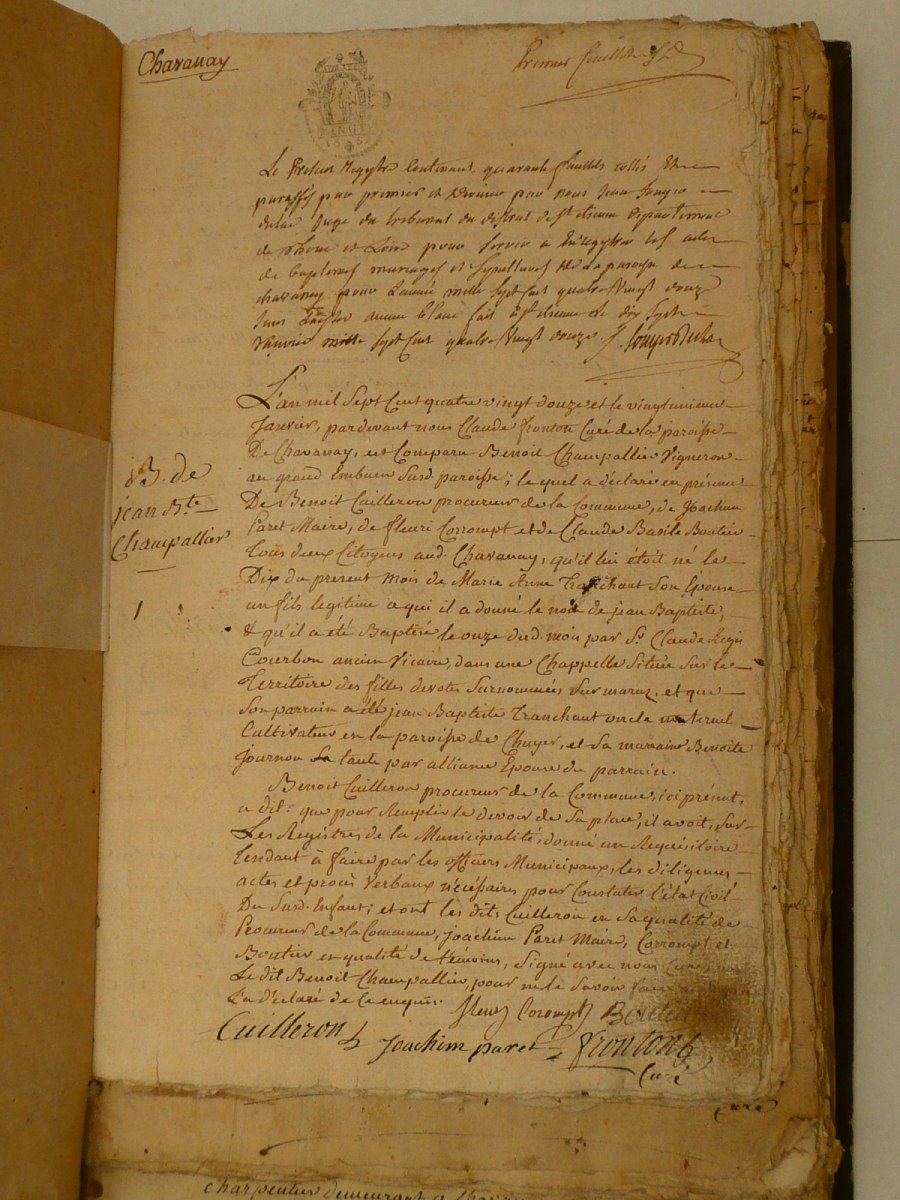 Chavanay
Premier feuillet
CINQ S
Le Present Registre Contenant quarante feuillets cottés Et
paraffés par premier et dernier par nous Jean
juge du tribunal du district de St Etienne departement
de Rhone et Loire pour servir a Enregistrer les actes
de baptemes mariages et sepultures de la paroisse de
chavanay pour L'année mille sept cent quatre Vingt douze
sans Laisser aucun blanc fait a St Etienne Le dix Sept
Janvier mille sept cent quatre Vingt douze
L'an mil Sept Cent quatre vingt douze et le vingt unieme
Janvier, pardevant nous Claude fronton Curé de la paroisse
De Chavanay, est Comparu Benoit Champallier Vigneron
au grand Embuen susd. paroisse; le quel a déclaré en présence
De Benoit Cuilleron procureur de la Commune, de Joachim
Paret Maire, de fleuri Corrompt et de Claude Basile Boutier
tous deux Citoyens aud. Chavanay, qu'il lui étoit né le
Dix du present mois de Marie Anne Tranchant son Épouse
un fils legitime a qui il a donné le nom de jean Baptiste,
& qu'il a été Baptisé le onze dud. mois par Sr. Claude
Courbon ancien Vicaire, dans une Chappelle Située sur le
Territoire des filles devotes Surnommées Sur maraz, et que
Son parrain a été jean Baptiste Tranchant oncle maternel
Cultivateur en la paroisse de Chuyer, et Sa marraine Benoite
Journou Sa tante par alliance Epouse du parrain.
Benoit Cuilleron procureur de la Commune, ici présent,
a dit: que pour Remplir le devoir de Sa place, il avoit, sur
Les Registres de la Municipalité, donné un Requisitoire
tendant à faire par les officiers Municipaux, les diligences
actes et procès Verbaux nécéssaires pour Constater l'état Civil
Du Susd. Enfant; et ont les dits Cuilleron en Sa qualité de
Procureur de la Commune, joachim Paret Maire, Corrompt et
Boutier en qualité de témoins, Signé avec nous Curé
Le dit Benoit Champallier, pour ne le Savoir faire
L'a déclaré de ce enquis.
B. de
jean Bte
Champallier
1
fleury Corompt Boutier
Cuilleron Joachim paret fronton
Curé
Curé
charpentier demeurant a